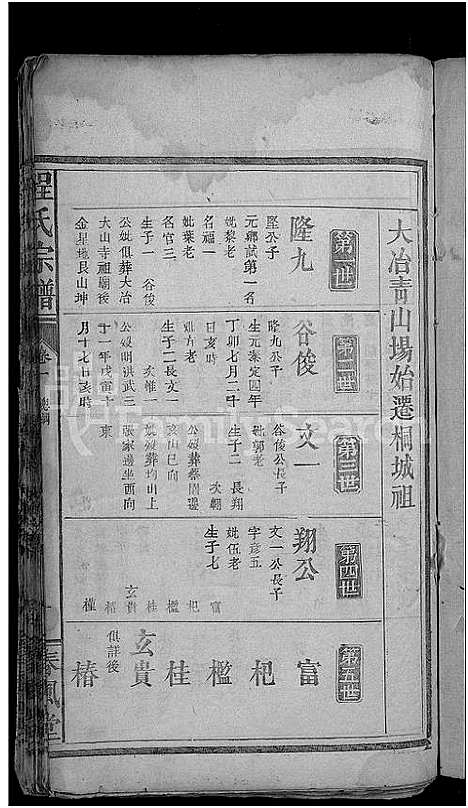 大冶青山場始遷桐城祖
第一世
隆九
堅公子
元鄉試第一名
妣黎老
名福一
妣葉老
名官三
生子一 谷俊
公妣俱葬大冶
大山寺祖廟後
金星塊艮山坤
第二世
谷俊
隆九公子
生元泰定四年
丁卯七月二十
日亥時
妣方老
生子二長文一
次惟一
公妣明洪武三
十一年戊寅十
月十七日亥時
第三世
文一
谷俊公長子
妣郭老
生子二 長翔
次朝
公妣葬蔡家邊
亥山巳向
妣葬均山上
張家邊坐酉向
東
第四世
翔公
文一公長子
字彥五
妣伍老
生子七
富
杞
檻
桂
玄貴
椿
第五世
富
杞
檻
桂
玄貴
俱詳後
椿
程氏宗譜
卷一
總綱
春風堂
FamilySearch